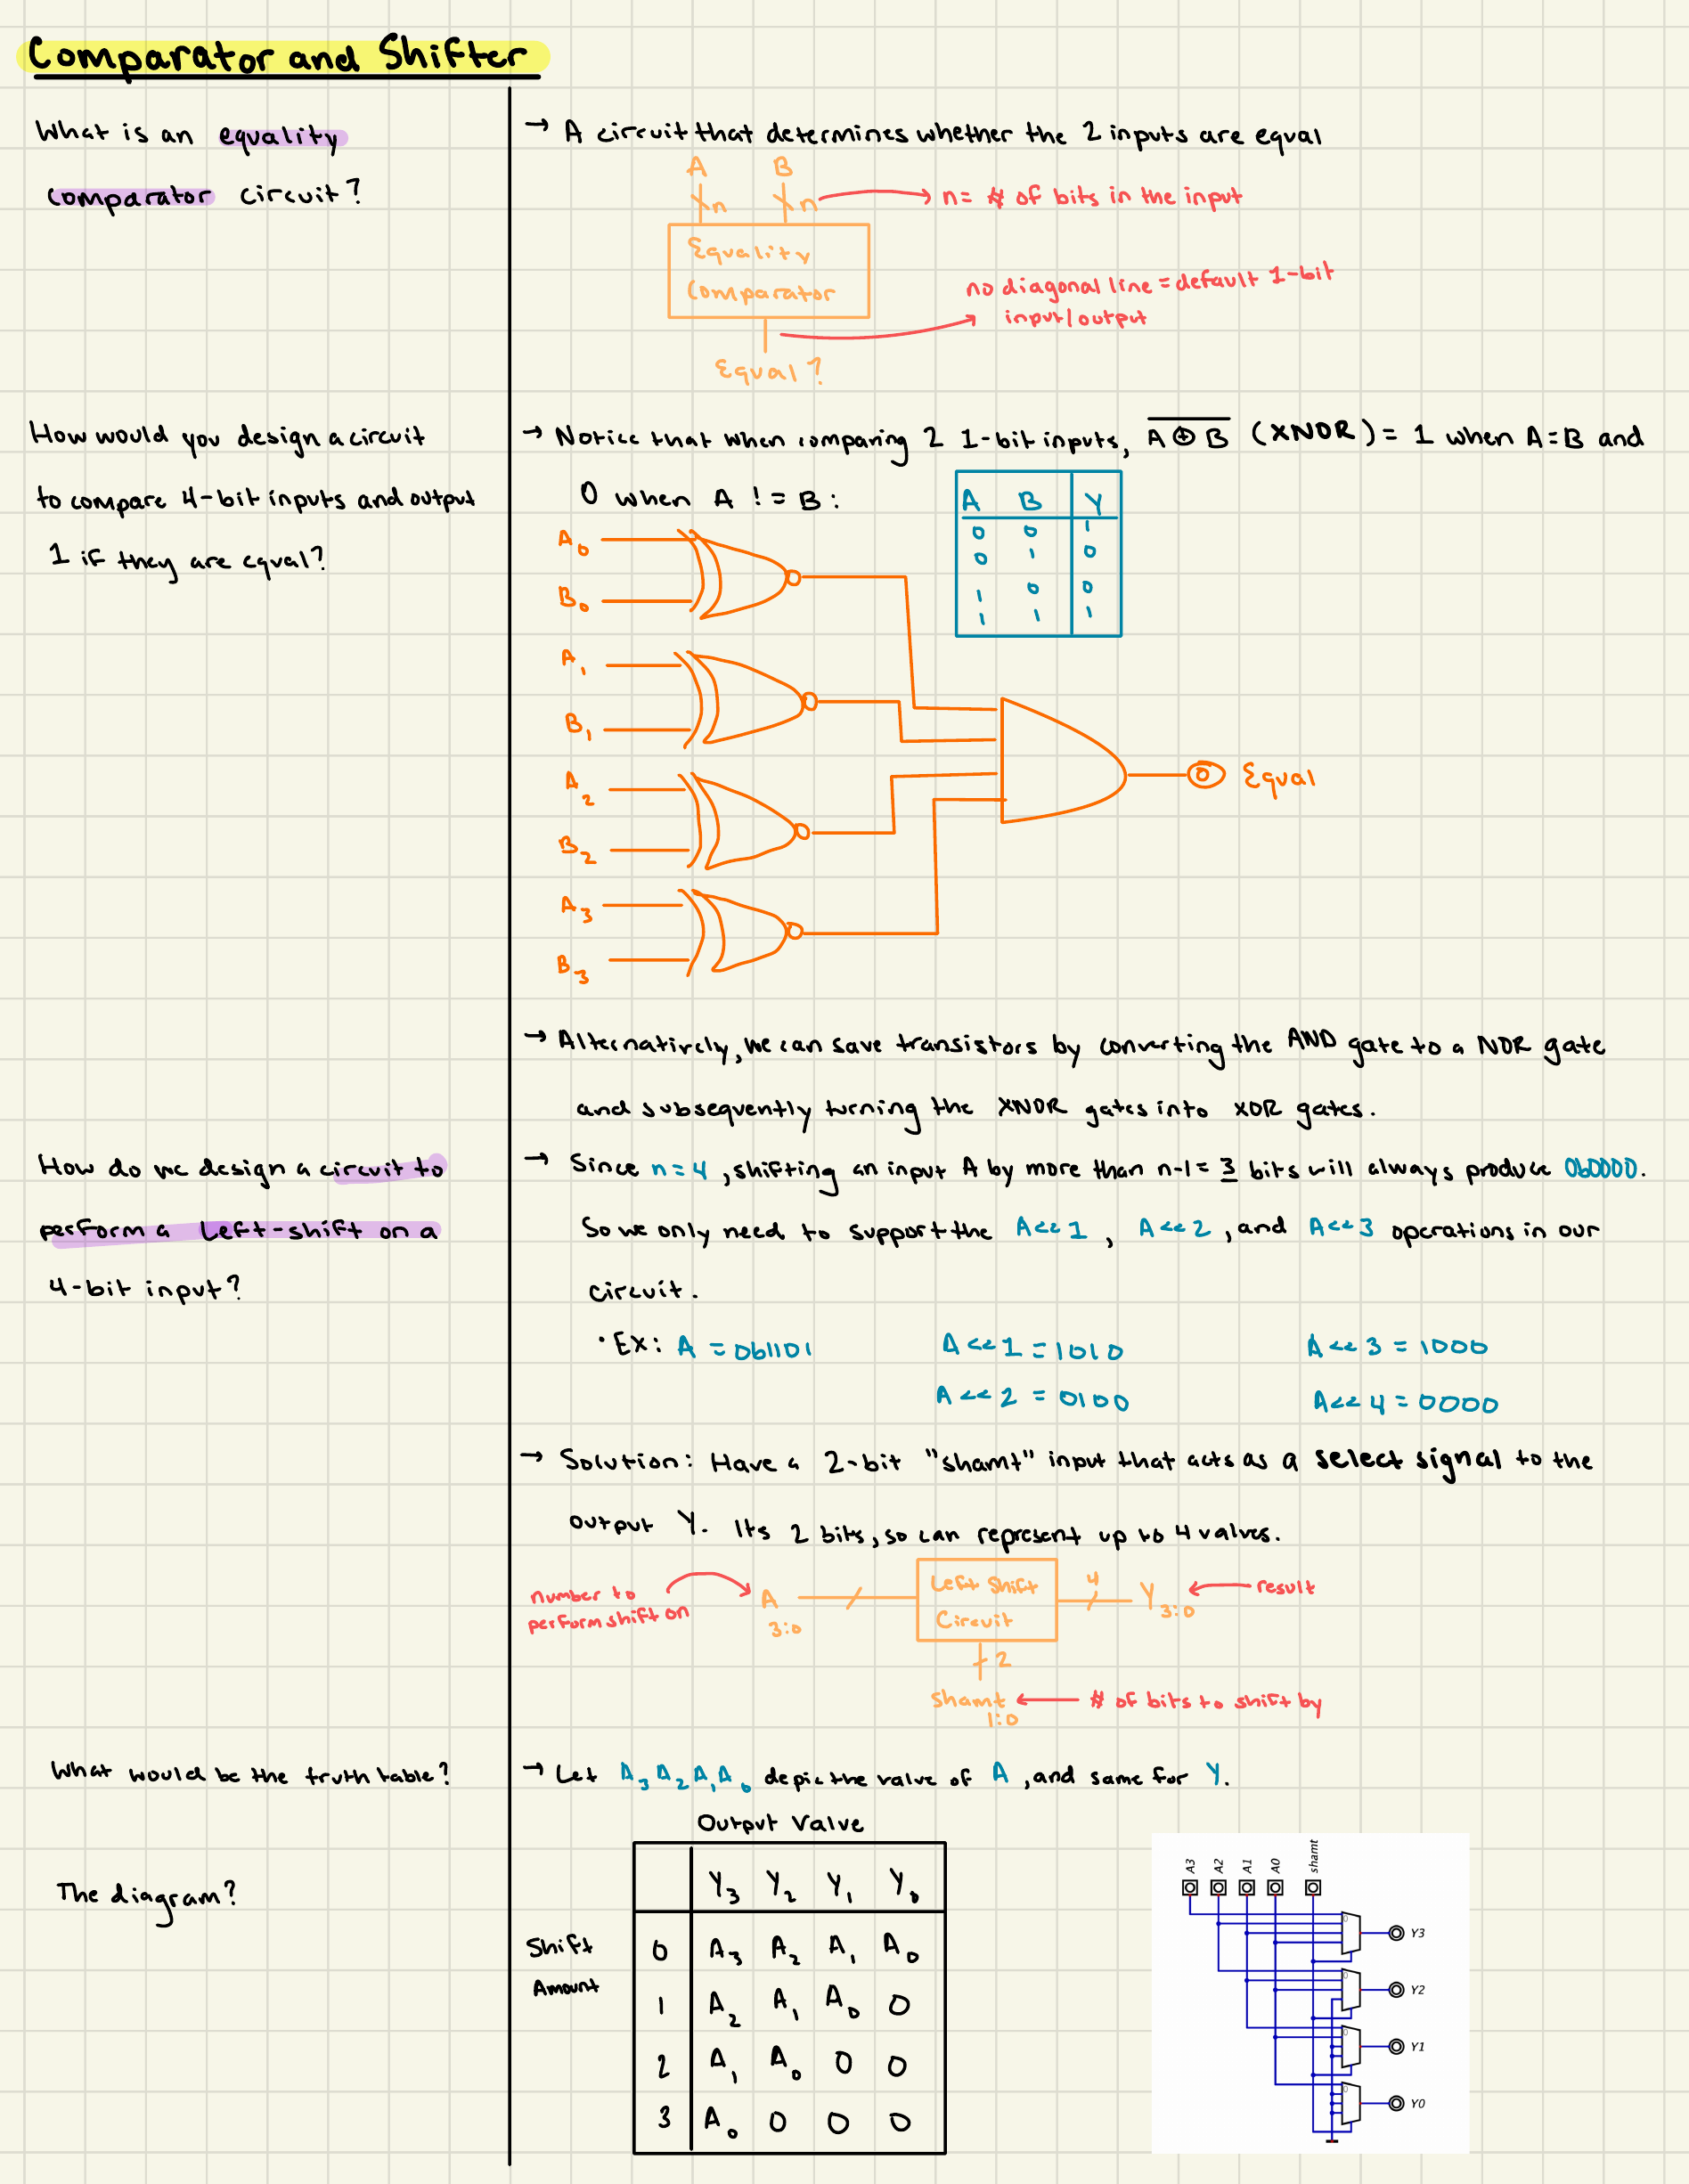 Comparator and Shifter
What is an equality
comparator circuit?
→ A circuit that determines whether the 2 inputs are equal
A B
n n → n = # of bits in the input
Equality
Comparator
no diagonal line = default 1-bit
input/output
Equal?
How would you design a circuit
to compare 4-bit inputs and output
1 if they are equal?
→ Notice that when comparing 2 1-bit inputs, A⊕B (XNOR) = 1 when A=B and
0 when A != B:
A B Y
0 0 1
0 1 0
1 0 0
1 1 1
A0
B0
A1
B1
A2
B2
A3
B3
Equal
→ Alternatively, we can save transistors by converting the AND gate to a NOR gate
and subsequently turning the XNOR gates into XOR gates.
How do we design a circuit to
perform a Left-shift on a
4-bit input?
→ Since n=4, shifting an input A by more than n-1=3 bits will always produce 0b0000.
So we only need to support the A<<1, A<<2, and A<<3 operations in our
circuit.
• Ex: A = 0b1101 A<<1 = 1010 A<<3 = 1000
A<<2 = 0100 A<<4 = 0000
→ Solution: Have a 2-bit "shamt" input that acts as a select signal to the
output Y. Its 2 bits, so can represent up to 4 values.
number to
perform shift on
A 3:0
Left Shift
Circuit
4
Y 3:0
← result
2
shamt 1:0 ← # of bits to shift by
What would be the truth table?
→ Let A3 A2 A1 A0 depic the value of A, and same for Y.
The diagram?
Output Value
Y3 Y2 Y1 Y0
Shift
Amount
0 A3 A2 A1 A0
1 A2 A1 A0 0
2 A1 A0 0 0
3 A0 0 0 0
A3 A2 A1 A0 shamt
0 Y3
0 Y2
0 Y1
0 Y0